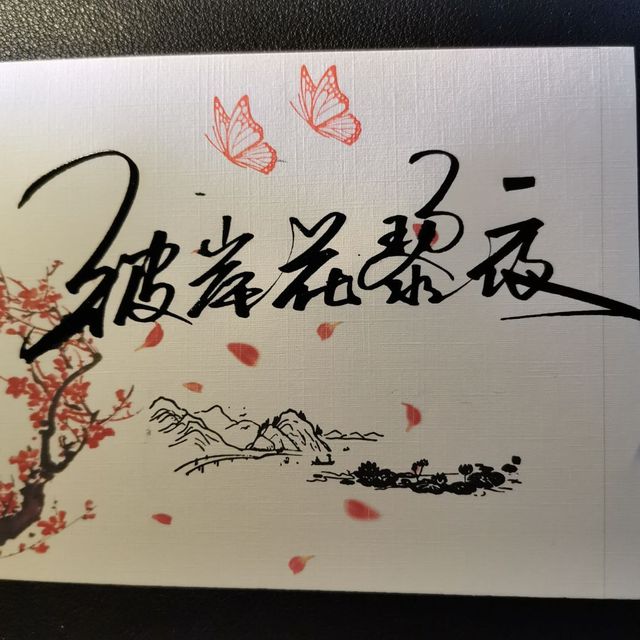 彼岸花黎夜